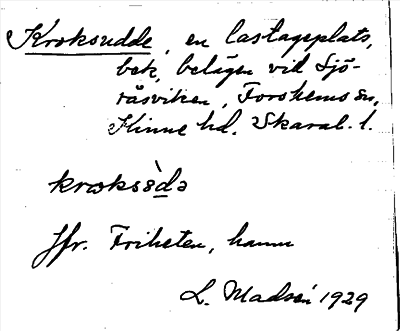 Kroksudde, en lastageplats,
bek, belägen vid Sjö-
råsviken, Forshems sn,
Kinne hd. Skarab. l.
krɷksòdə
Jfr. Friheten, hamn
L. Madsén 1929